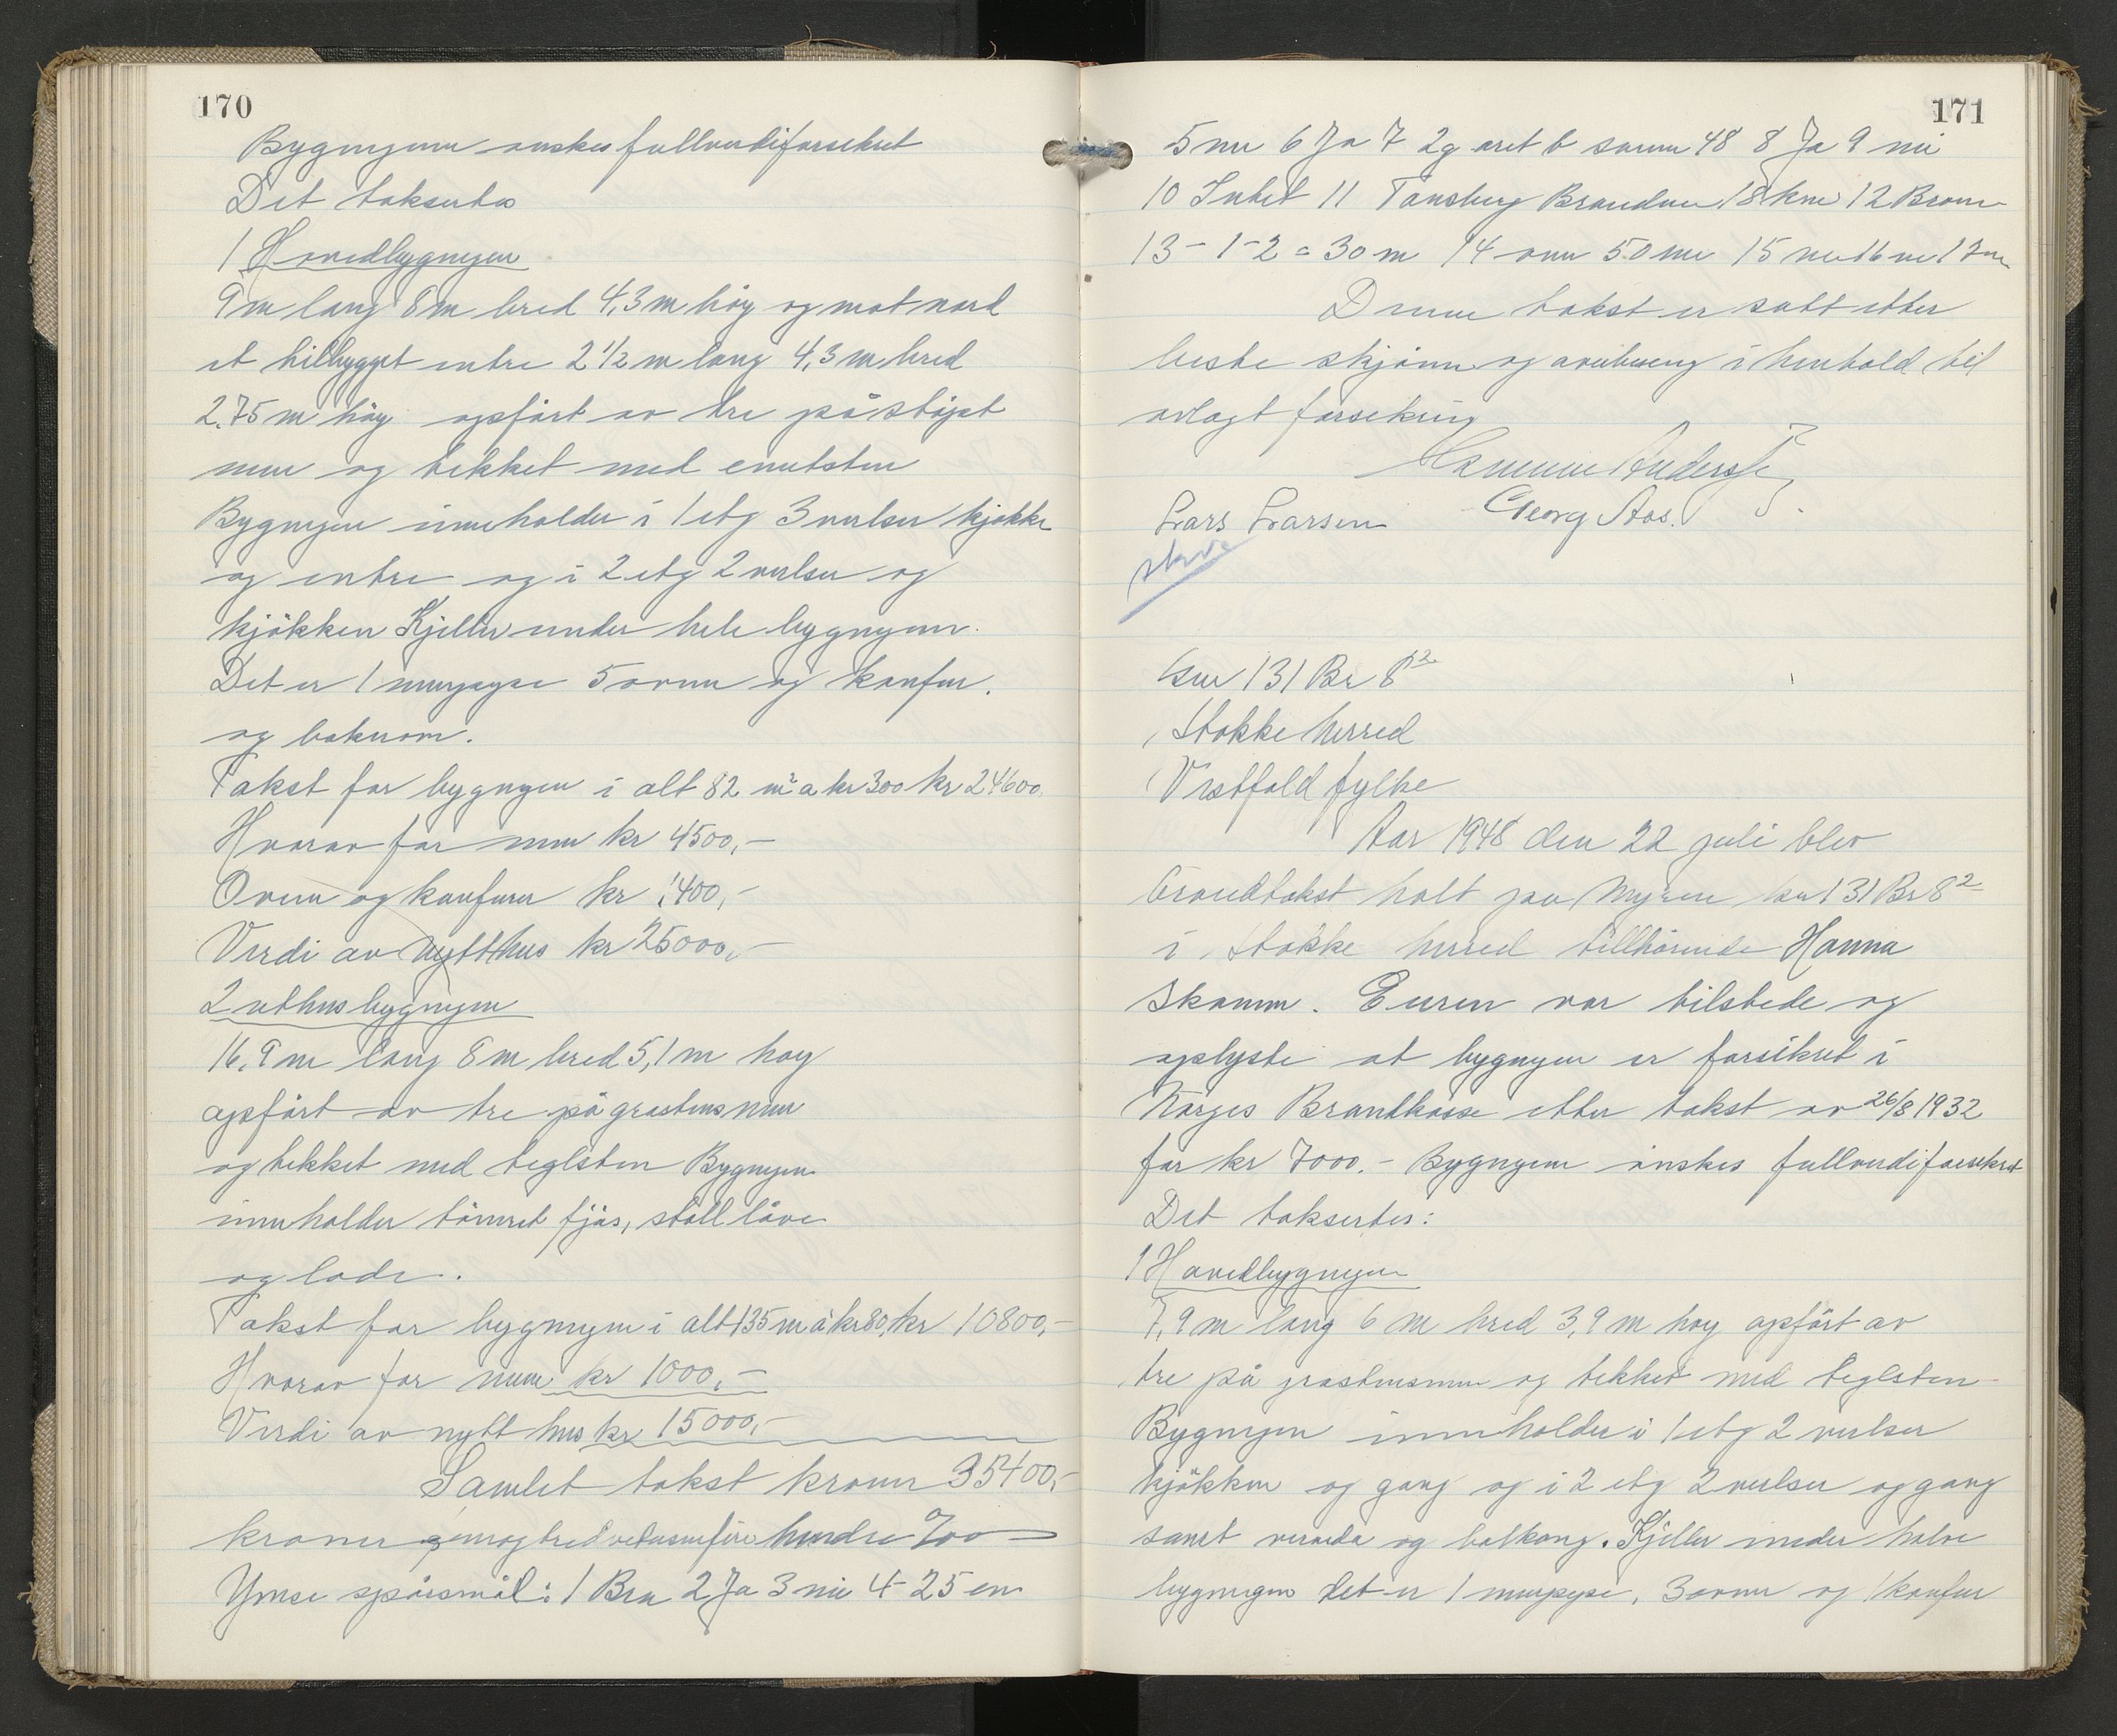 170
Bygnyenn ønskes fullverdiforsekret
Det taksertes
1 Hovedbygnyen
9 m lang 8 m bred 4,3 m høy og mot nord
et tilbygget entre 2 1/2 m lang 4,3 m bred
2,75 m høy opført av tre på støpt
mur og tekket med
Bygnyen inneholder i 1 etg 3 verlser kjøkke
og entre og i 2 etg 2 verlser og
kjøkken Kjeller under hele bygnyenn.
Det er 1 murpype 5 ovnn og komfur.
og bakerom.
Takst for bygnyen i alt 82 m² a kr 300 kr 24600,
Hvorav for mur kr 4500,-
Ovnn og komfurer kr 1400,-
Verdi av nytt hus kr 25000,-
2 uthusbygnyen
16,9 m lang 8 m bred 5,1 m høy
opført av tre på grastensmur
og tekket med teglsten Bygnyen
inneholder tømret fjøs, stall låve
og lade.
Takst for bygnyen i alt 135 m à kr 80, kr 10800,-
Hvorav for mur kr 1000,-
Verdi av nytt hus kr 15000,-
Samlet takst kroner 35400,-
kroner hundre
Ymse spørsmål: 1 Bra 2 Ja 3 nei 4- 25 en
171
5 nei 6 Ja 7 2g aret b samm 48 8 Ja 9 nei
10 Intet 11 Tønsberg Brandven 18 km 12 Brønn
13 - 1-2 = 30 m 14 50 m 15 nei 16 nei 17 nei
Denne takst er satt etter
beste skjønn og overbevisning i henhold til
avlagt forsekring
Andersen
Lars Larsen Georg Aas.
skrv
Gnr 131 Br 8²
Stokke herred
Vestfold fylke
Aar 1948 den 22 juli blev
Brandtakst holt paa Myren Gnr 131 Br 8²
i Stokke herred tillhørende Hanna
Skomm. Euren var tilstede og
oplyste at bygnyen er forsikret i
Norges Brandkasse etter takst av 26/8 1932
for kr 7000.- Bygnyenn ønskes fullverdiforsekret
Det taksertes:
1 Hovedbygnyen
7,9 m lang 6 m bred 3,9 m høy opført av
tre på grastensmur og tekket med teglsten
Bygnyen inneholder i 1 etg 2 verlser
kjøkken og gang og i 2 etg 2 verlser og gang
samt veranda og balkong. Kjeller under halve
bygnyen det er 1 murpype, 3 ovner og 1 komfur